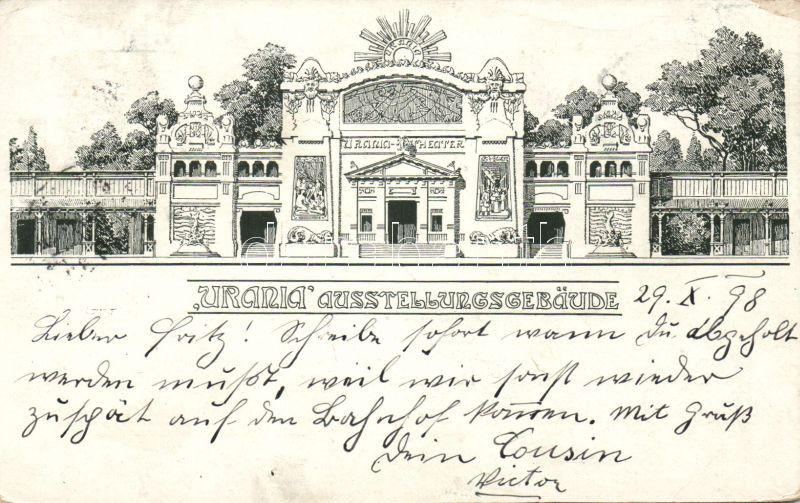 URANIA
URANIA-THEATER
"URANIA" AUSSTELLUNGSGEBÄUDE 29. X. 98
Lieber Fritz! Schreibe sofort wann du abgeholt
werden mußt, weil wir sonst wieder
zuspät auf den Bahnhof kommen. Mit Gruß
dein Cousin
Victor